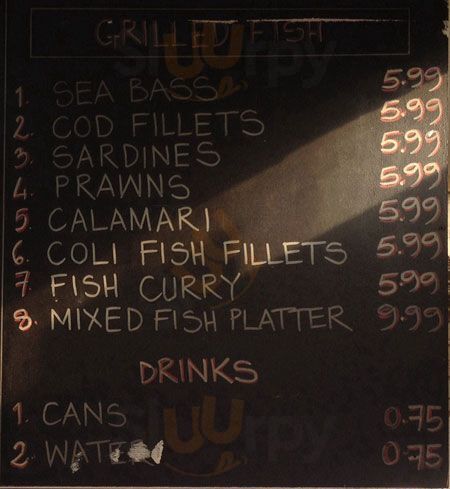 GRILLED FISH
1. SEA BASS 5.99
2. COD FILLETS 5.99
3. SARDINES 5.99
4. PRAWNS 5.99
5. CALAMARI 5.99
6. COLI FISH FILLETS 5.99
7. FISH CURRY 5.99
8. MIXED FISH PLATTER 9.99
DRINKS
1. CANS 0.75
2. WATER 0.75
sluurpy
sluurpy